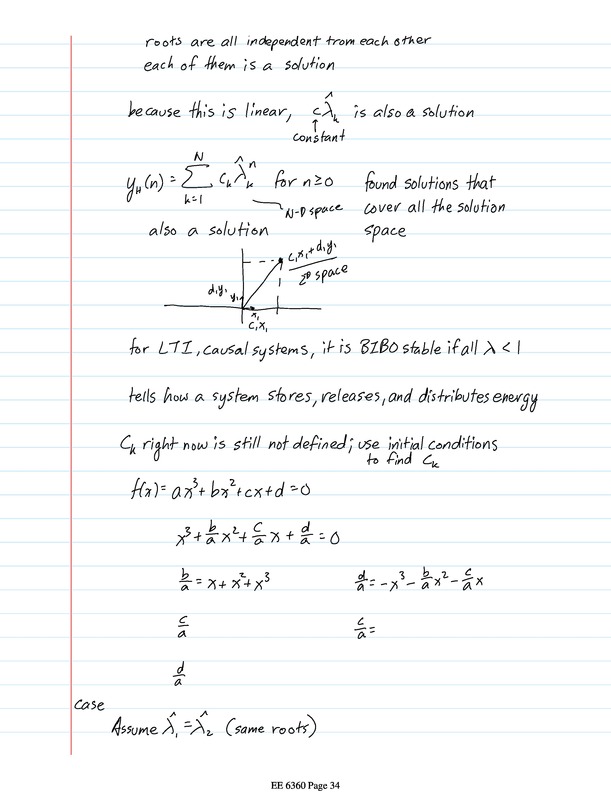 roots are all independent from each other
each of them is a solution
because this is linear, cλ̂ₖ is also a solution
↑
constant
y_H(n) = Σ_{k=1}^{N} Cₖ λ̂ₖⁿ for n≥0
N-D space
found solutions that
cover all the solution
space
also a solution
C₁x₁+d₁y₁
2D space
d₁y₁
y₁
x₁
C₁x₁
for LTI, causal systems, it is BIBO stable if all λ < 1
tells how a system stores, releases, and distributes energy
Cₖ right now is still not defined; use initial conditions
to find Cₖ
f(x) = ax³+bx²+cx+d=0
x³ + b/a x² + c/a x + d/a = 0
b/a = x + x² + x³
d/a = -x³ - b/a x² - c/a x
c/a
c/a =
d/a
case
Assume λ̂₁ = λ̂₂ (same roots)
EE 6360 Page 34